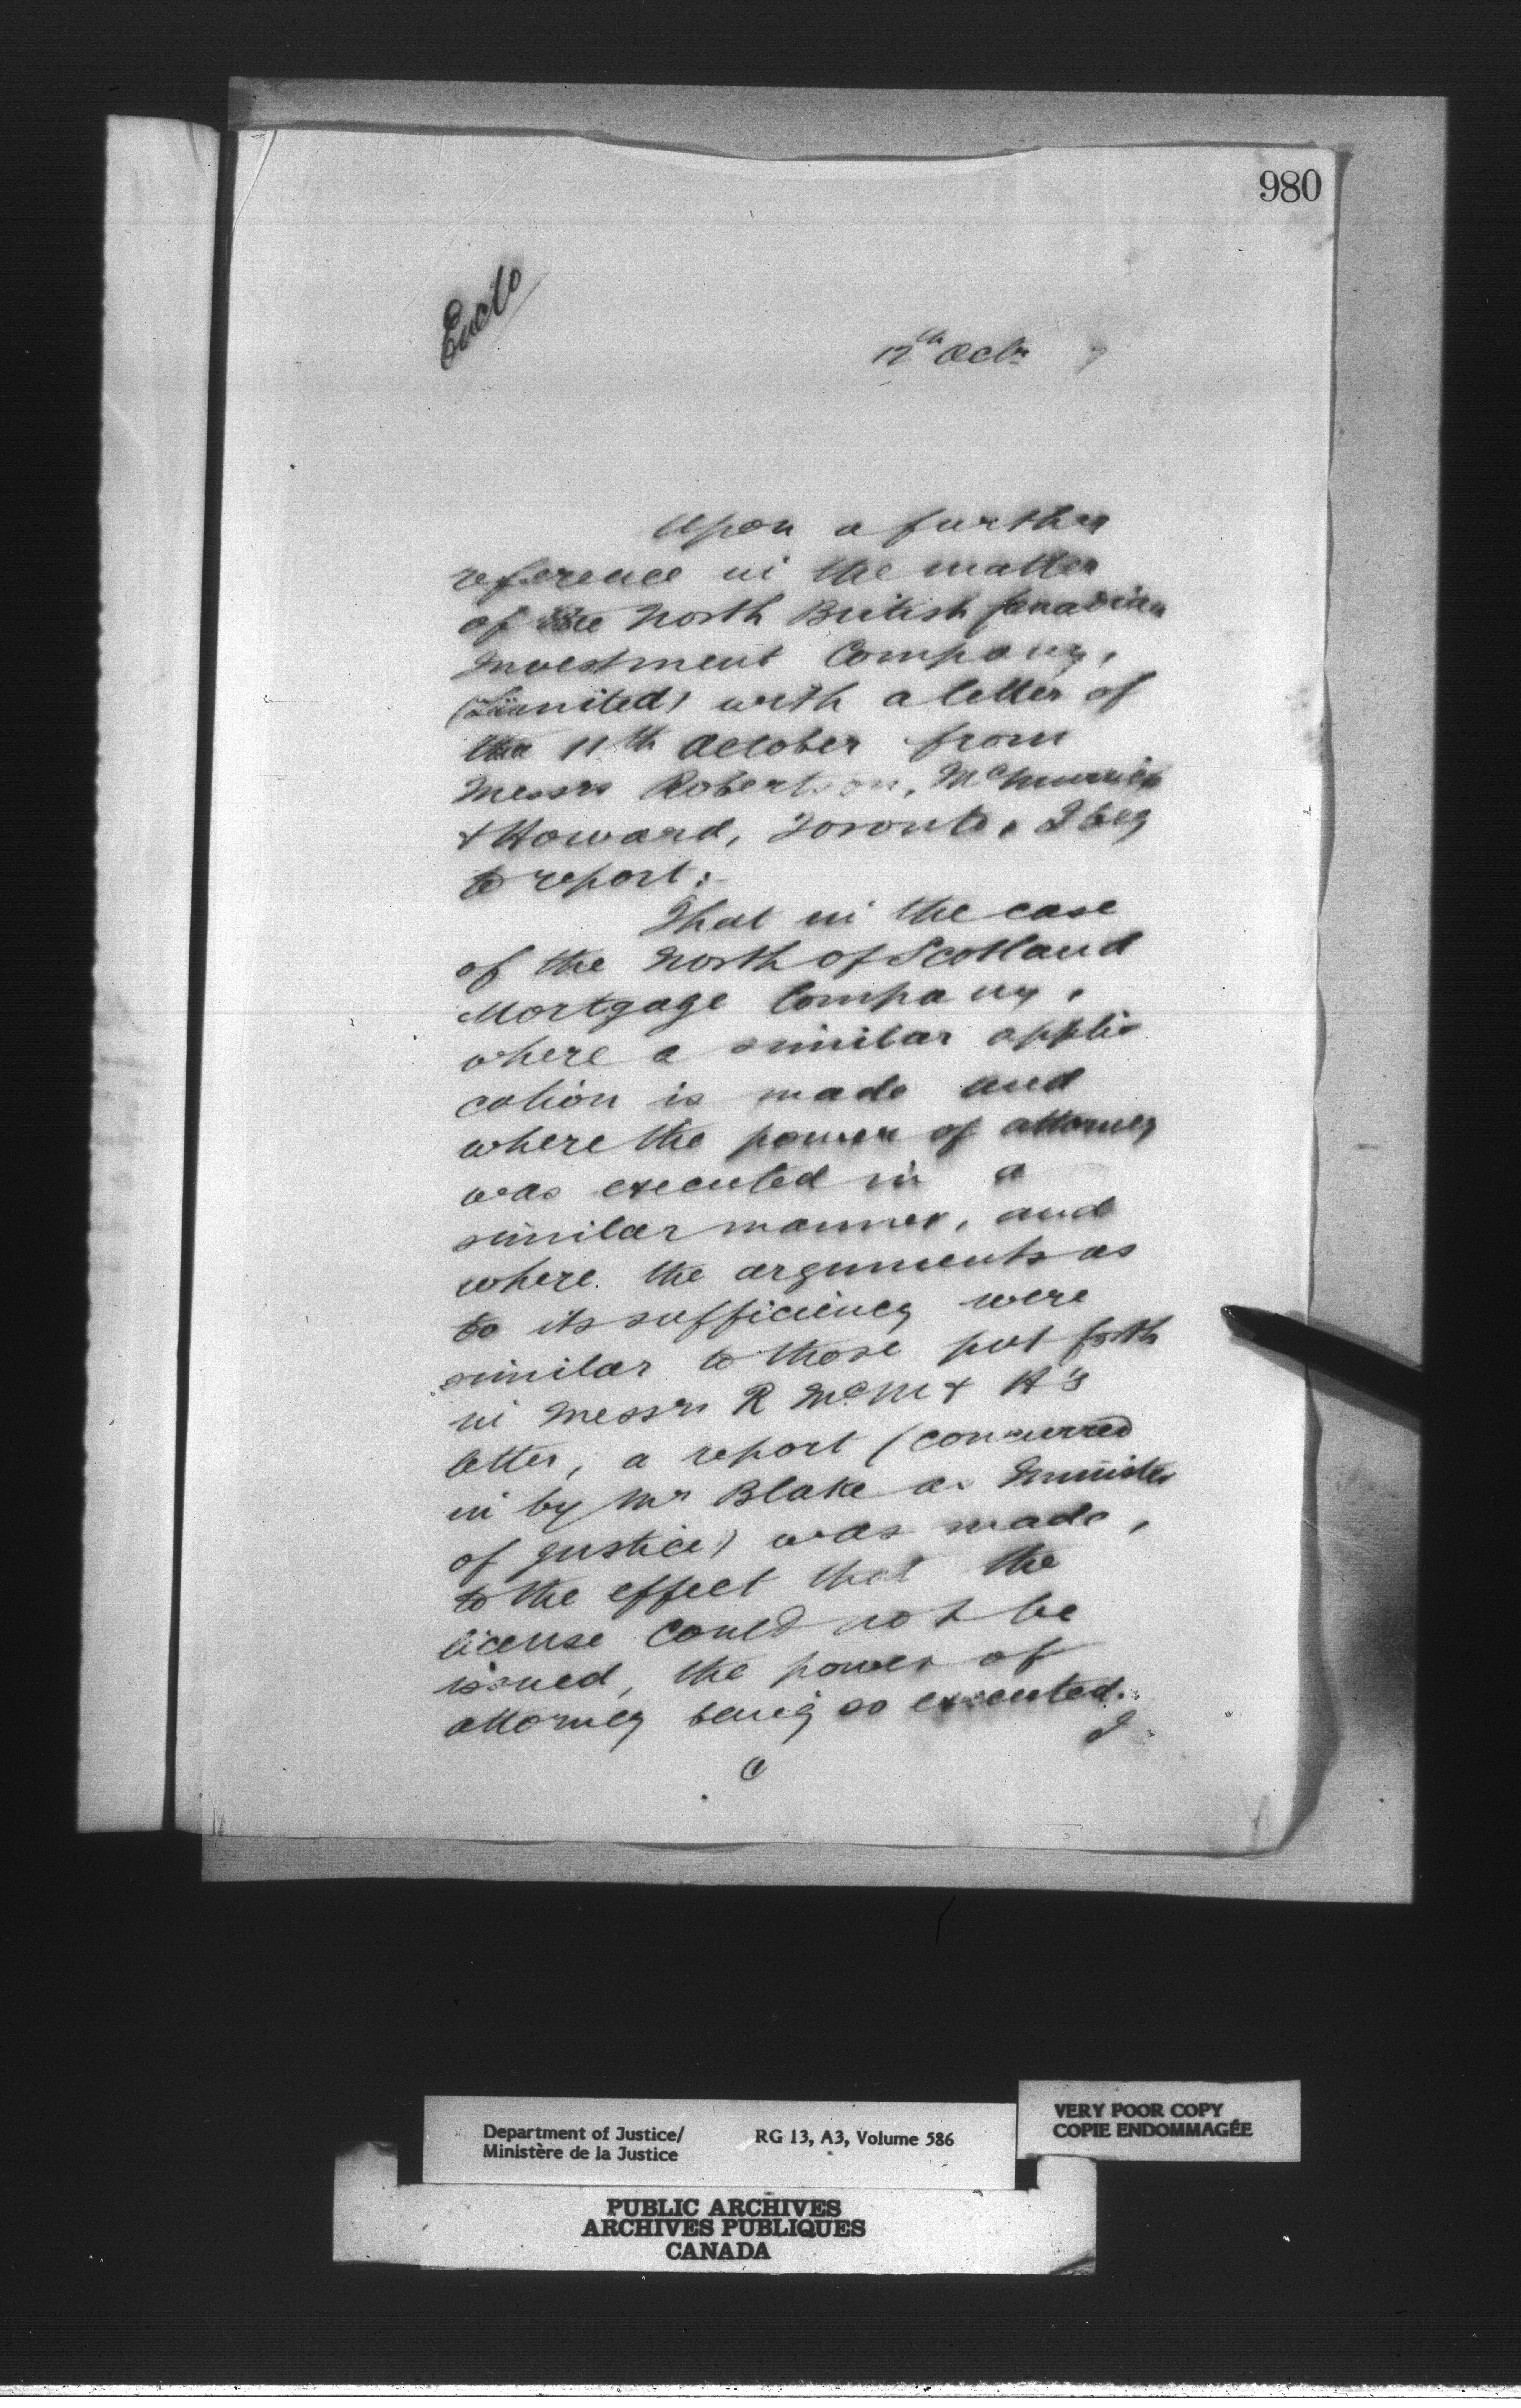 980
Encls
12th Octr 7
Upon a further
reference in the matter
of the North British Canadian
Investment Company,
(Limited) with a letter of
the 11th October from
Messrs Robertson, McMurrich
& Howard, Toronto, I beg
to report:
That in the case
of the North of Scotland
Mortgage Company,
where a similar appli
cation is made and
where the power of attorney
was executed in a
similar manner, and
where the arguments as
to its sufficiency were
similar to those put forth
in Messrs R McM & H's
letter, a report (concurred
in by Mr Blake as Minister
of Justice) was made,
to the effect that the
license could not be
issued, the power of
attorney being so executed.
I
Department of Justice/
Ministère de la Justice
RG 13, A3, Volume 586
VERY POOR COPY
COPIE ENDOMMAGÉE
PUBLIC ARCHIVES
ARCHIVES PUBLIQUES
CANADA